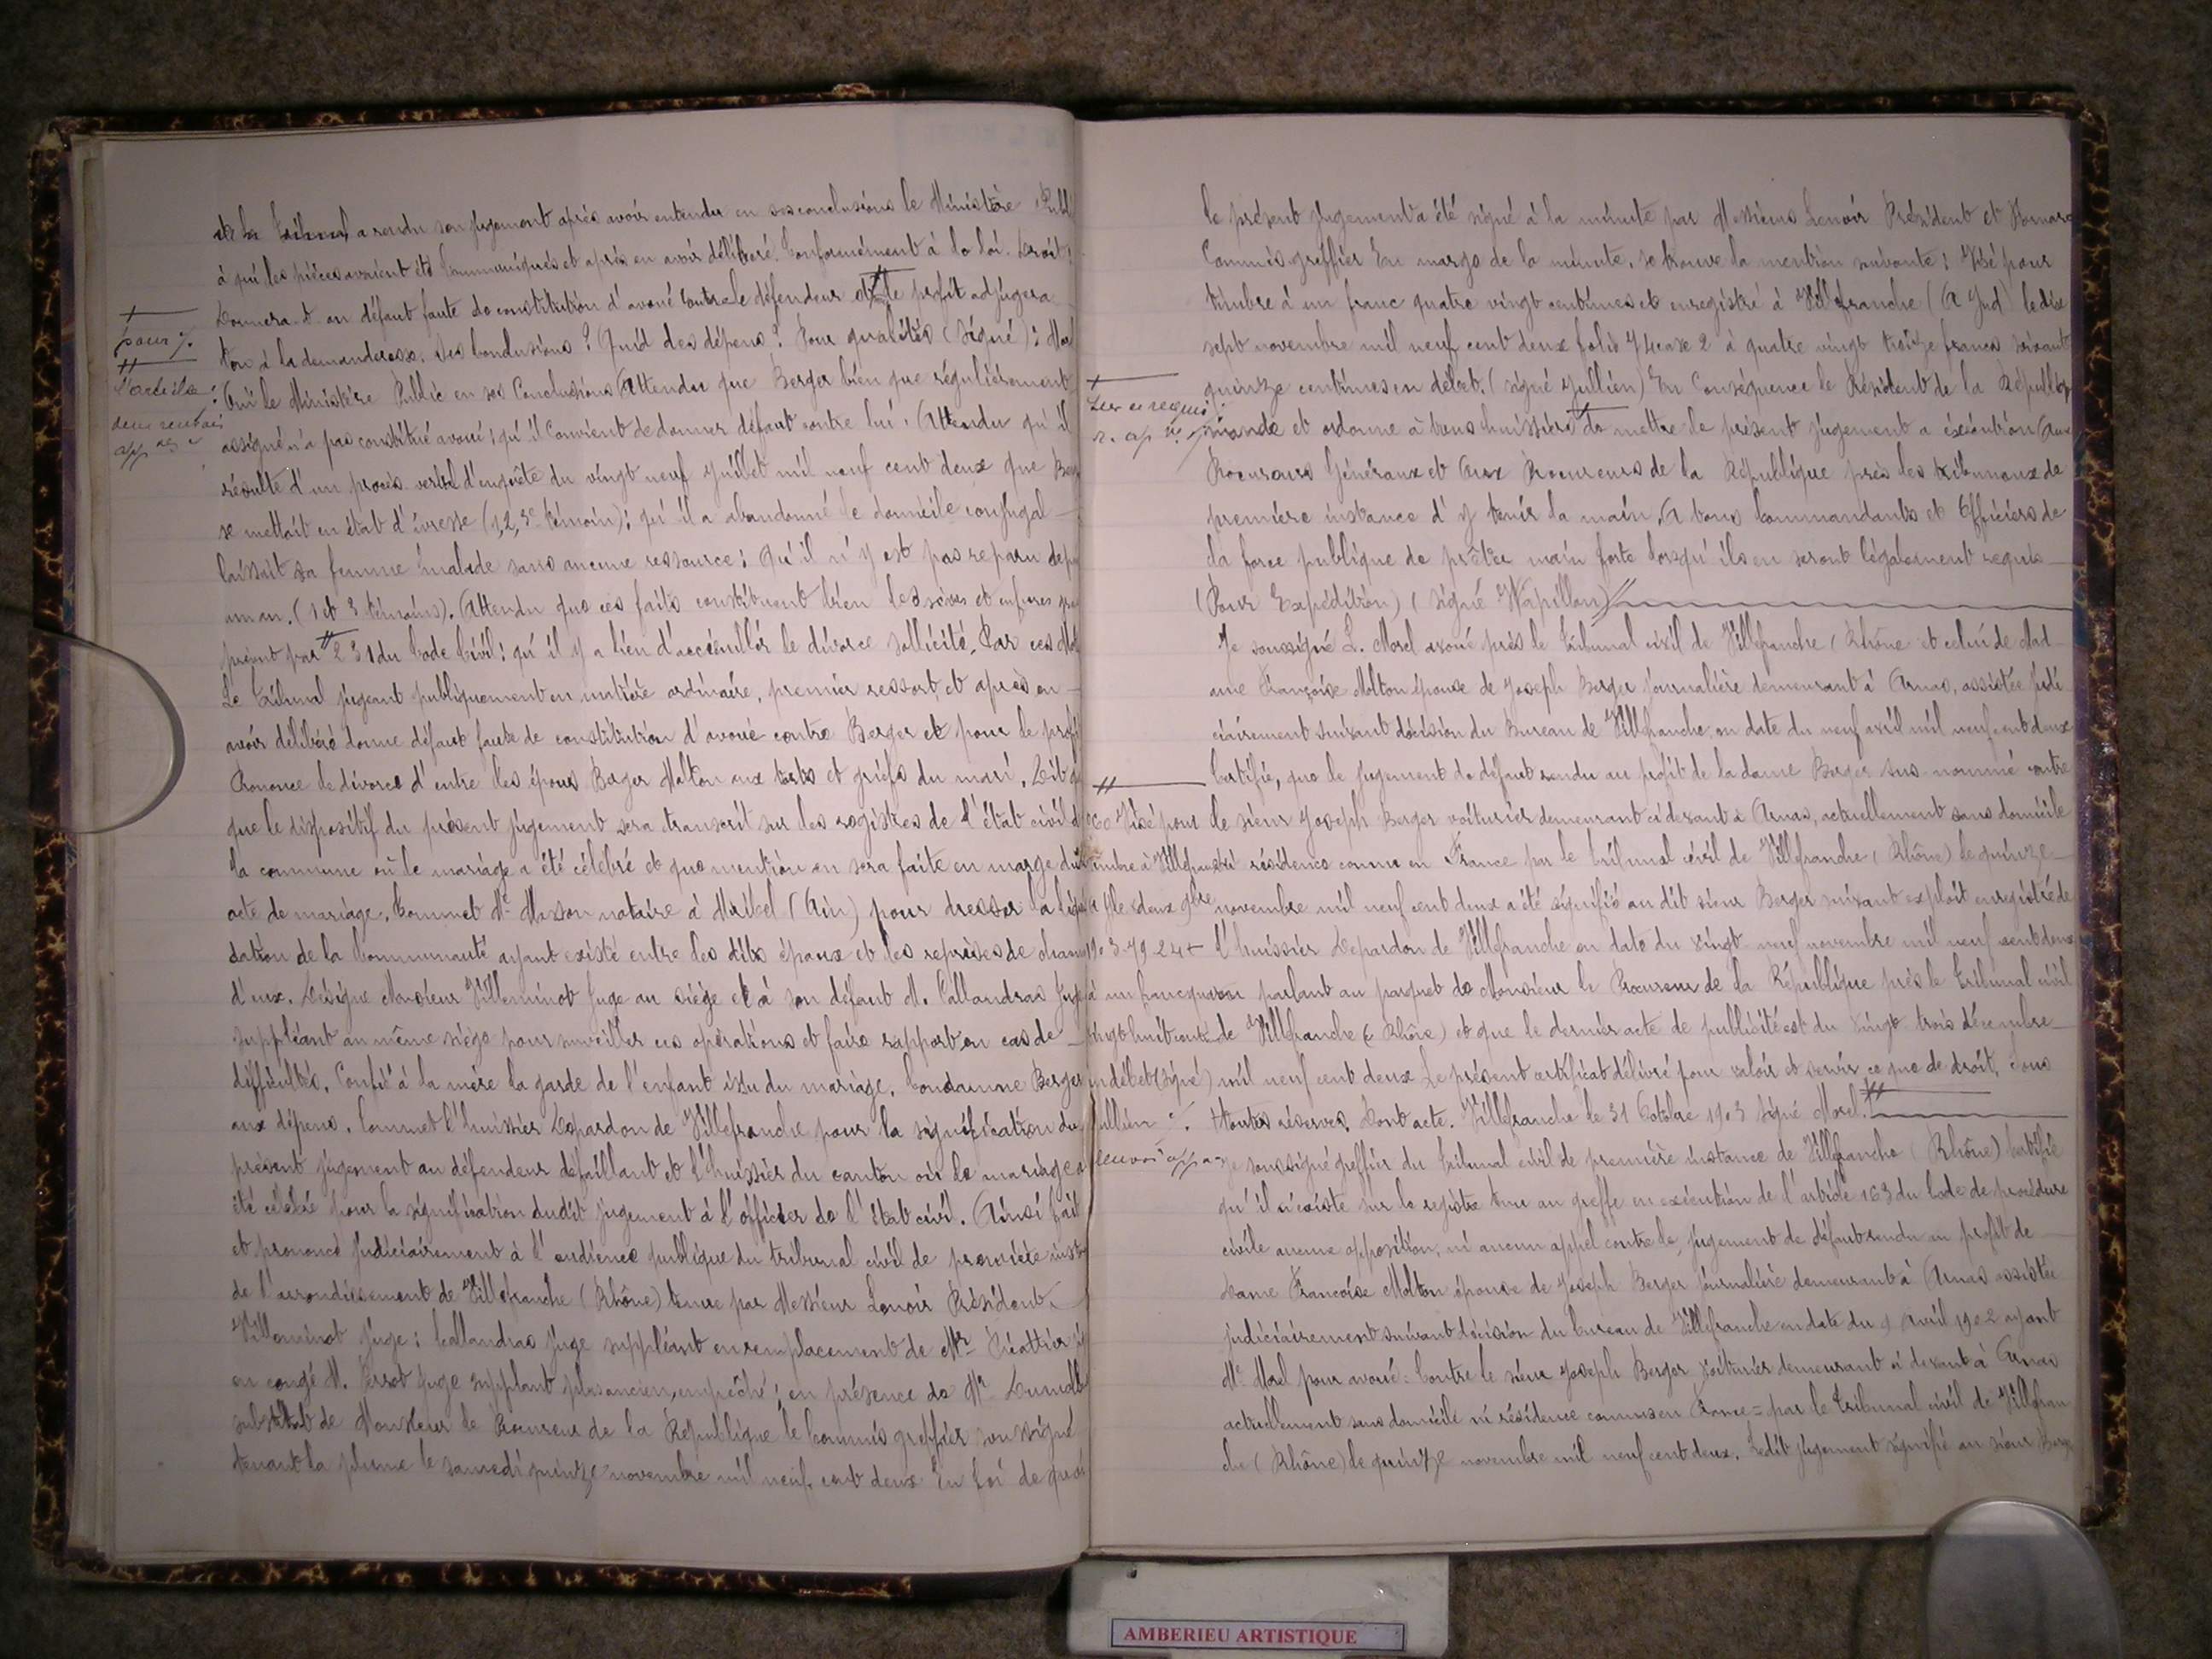 et le Tribunal a rendu son jugement après avoir entendu en ses conclusions le Ministère Publ
à qui les pièces avaient été communiquées et après en avoir délibéré. Conformément à la loi. Droit:
Donnera-t-on défaut faute de constitution d'avoué contre le défendeur et le profit adjugera
t'on à la demanderesse, ses conclusions? Quid des dépens? Pour qualités (signé):
Ouï le Ministère Public en ses Conclusions Attendu que Berger bien que régulièrement
assigné n'a pas constitué avoué; qu'il convient de donner défaut contre lui. Attendu qu'il
résulte d'un procès verbal d'enquête du vingt neuf Juillet mil neuf cent deux que Berg
se mettait en état d'ivresse (1, 2, 3e témoin); qu'il a abandonné le domicile conjugal
laissant sa femme malade sans aucune ressource; qu'il n'y est pas reparu depu
un an. (1 et 3 témoins). Attendu que ces faits constituent bien les sévices et injures
par 231 du Code Civil; qu'il y a lieu d'accueillir le divorce sollicité. Par ces Mot
Le Tribunal jugeant publiquement en matière ordinaire, premier ressort, et après en
avoir délibéré donne défaut faute de constitution d'avoué contre Berger et pour le profit
Prononce le divorce d'entre les époux Berger Molton aux torts et griefs du mari. Dit
que le dispositif du présent jugement sera transcrit sur les registres de l'état civil d
la commune où le mariage a été célébré et que mention en sera faite en marge du
acte de mariage. Commet Me Masson notaire à Miribel (Ain) pour dresser la liqui
dation de la Communauté ayant existé entre les dits époux et les reprises de chacun
d'eux. Désigne Monsieur Villeminot Juge au siège et à son défaut M. Callandras Juge
suppléant au même siège pour surveiller ces opérations et faire rapport en cas de
difficultés. Confie à la mère la garde de l'enfant issu du mariage. Condamne Berger
aux dépens. Commet l'huissier Depardon de Villefranche pour la signification du
présent jugement au défendeur défaillant et l'huissier du canton où le mariage a
été célébré pour la signification dudit jugement à l'officier de l'état civil. Ainsi fait
et prononcé judiciairement à l'audience publique du tribunal civil de première inst
de l'arrondissement de Villefranche (Rhône) tenue par Messieurs Lenoir Président,
Villeminot juge; Callandras juge suppléant en remplacement de Mr
en congé M. Perrot juge suppléant plus ancien, empêché; en présence de Mr
substitut de Monsieur le Procureur de la République le Commis greffier soussigné
tenant la plume le samedi quinze novembre mil neuf cent deux En foi de quoi
pour /.
l'article:
deux renvois
le présent jugement a été signé à la minute par Messieurs Lenoir Président et
Commis greffier En marge de la minute, se trouve la mention suivante: Visé pour
timbre à un franc quatre vingt centimes et enregistré à Villefranche (A Jud) le dix
sept novembre mil neuf cent deux folio 74 case 2 à quatre vingt treize francs soixante
quinze centimes en débet. (signé Jullien) En Conséquence le Président de la République
mande et ordonne à tous huissiers de mettre le présent jugement à exécution Aux
Procureurs Généraux et Aux Procureurs de la République près les tribunaux de
première instance d'y tenir la main. A tous Commandants et Officiers de
la force publique de prêter main forte lorsqu'ils en seront légalement requis
(Pour Expédition) (signé Wapillon)
Je soussigné L. Morel avoué près le Tribunal civil de Villefranche (Rhône et celui de Mad
ame Françoise Molton épouse de Joseph Berger journalière demeurant à Arnas, assistée judi
ciairement suivant décision du Bureau de Villefranche, en date du neuf avril mil neuf cent deux
Certifie, que le jugement de défaut rendu au profit de la dame Berger sus-nommé contre
le sieur Joseph Berger voiturier demeurant ci devant à Arnas, actuellement sans domicile
ni résidence connue en France par le tribunal civil de Villefranche (Rhône) le quinze
novembre mil neuf cent deux a été signifié au dit sieur Berger suivant exploit enregistré de
l'huissier Depardon de Villefranche en date du vingt neuf novembre mil neuf cent deux
parlant au parquet de Monsieur le Procureur de la République près le tribunal civil
de Villefranche (Rhône) et que le dernier acte de publicité est du vingt trois décembre
mil neuf cent deux Le présent certificat délivré pour valoir et servir ce que de droit, sous
toutes réserves. Dont acte. Villefranche le 31 Octobre 1903 Signé Morel.
Je soussigné greffier du tribunal civil de première instance de Villefranche (Rhône) Certifie
qu'il n'existe sur le registre tenu au greffe en exécution de l'article 163 du Code de procédure
civile aucune opposition, ni aucun appel contre le jugement de défaut rendu au profit de
Dame Françoise Molton épouse de Joseph Berger journalière demeurant à Arnas assistée
judiciairement suivant décision du bureau de Villefranche en date du 9 Avril 1902 ayant
Me Morel pour avoué: Contre le sieur Joseph Berger voiturier demeurant ci devant à Arnas
actuellement sans domicile ni résidence connus en France = par le Tribunal civil de Villefran
che (Rhône) le quinze novembre mil neuf cent deux. Ledit jugement signifié au sieur Berge
sur ce requis:
Visé pour
timbre à Villefranche
à un franc
vingt huit cent
en débet (signé)
Jullien ./.
renvoi app
AMBERIEU ARTISTIQUE